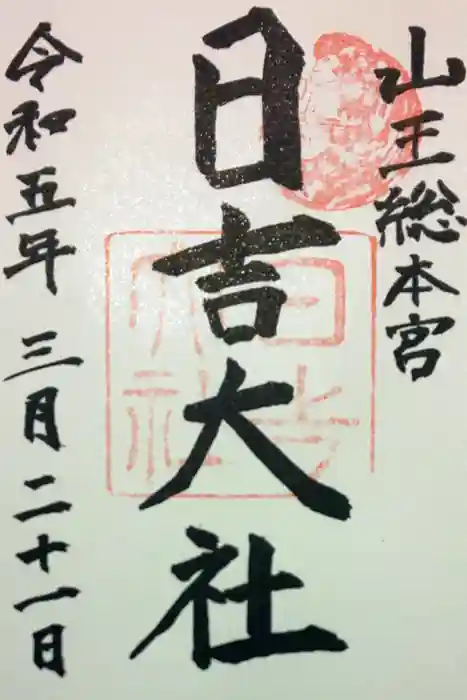 山王総本宮
日吉大社
令和五年三月二十一日
日吉大社